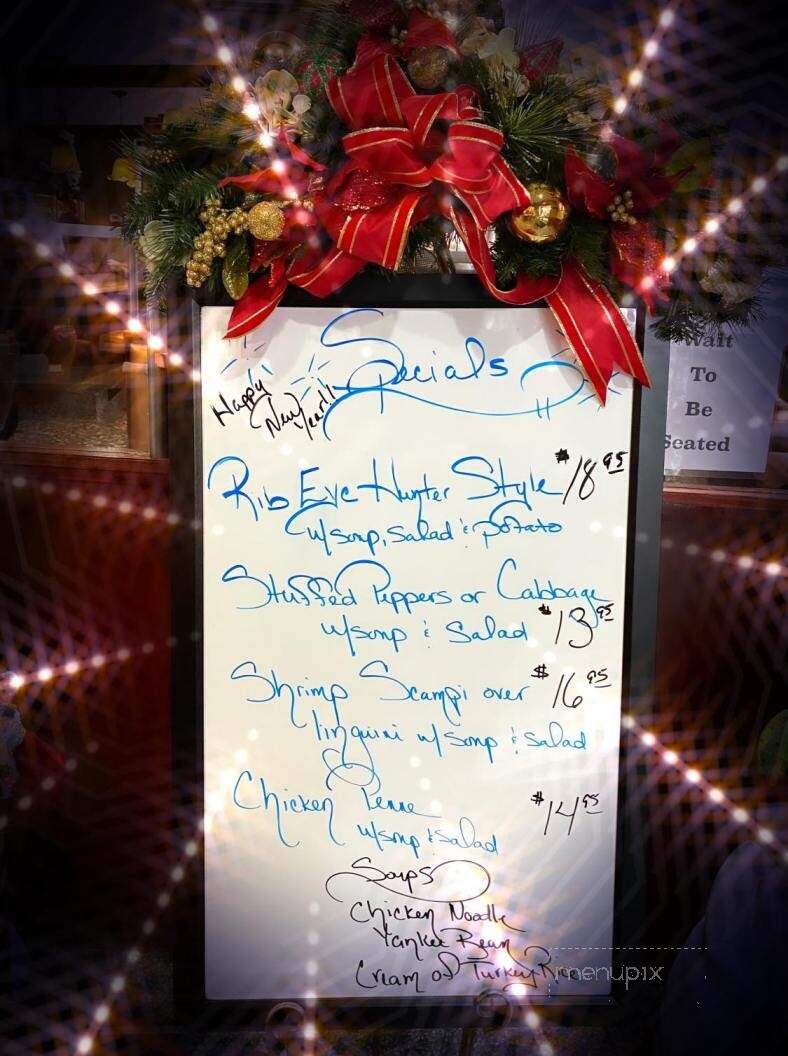 Specials
Happy
New
Year!!
Rib Eye Hunter Style $18.95
w/soup, salad & potato
Stuffed Peppers or Cabbage
w/soup & Salad $13.95
Shrimp Scampi over $16.95
linguini w/soup & salad
Chicken Penne $14.95
w/soup & salad
Soups
Chicken Noodle
Yankee Bean
Cream of Turkey Rice
Wait
To
Be
Seated
menupix